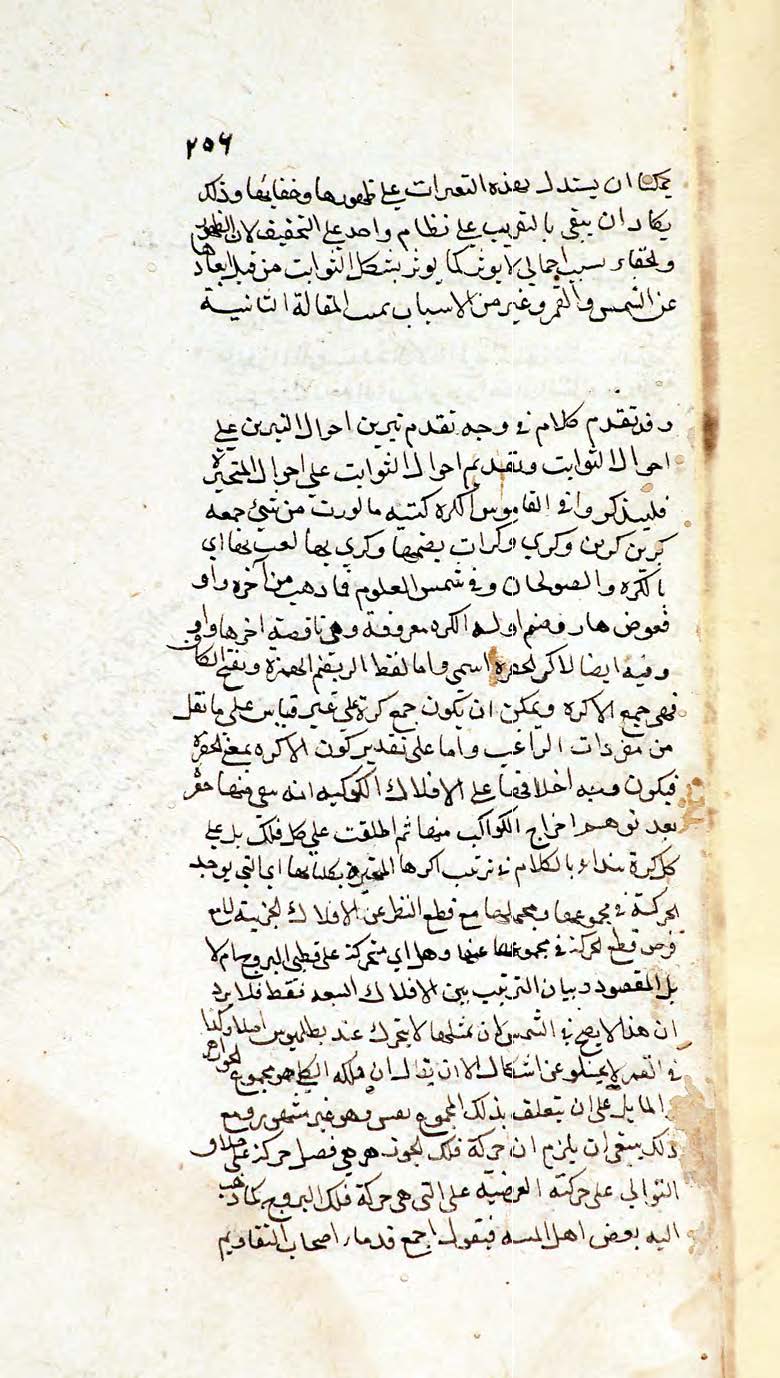 ٢٥٦
يمكننا ان يستدل بهذه التغيرات على ظهورها وخفائها وذلك
يكاد ان يبقى بالتقريب على نظام واحد على التخفيف لان الظهور
والخفاء بسبب اجمالي لا يوثر كما يوثر بشكل الثوابت من قبل ابعادها
عن الشمس والقمر وغير من الاسباب تمت المقالة الثانية
وقد تقدم كلام في وجه تقدم احوال النيرين على
احوال الثوابت وتقديم احوال الثوابت على احوال المتحيرة
فليتذكر وفي القاموس الكرة كثبة ما ادرت من شيء جمعه
كرين كرين وكرى وكرات بضمها وكرى بها لعب بها اي
بالكرة والصولجان وفي شمس العلوم مما ذهب من آخره واو
فعوض هاء وضم اوله الكرة معروفة وهي ناقصة آخرها واو
وفيه ايضا الاكرة الحفرة اسمى واما لفظ الاكر بضم الهمزة وفتح الكاف
فهي جمع الاكرة ويمكن ان يكون جمع كرة على غير قياس على ما نقل
من مفردات الراغب واما على تقدير كون الاكرة بمعنى الحفرة
فيكون وجه اطلاقها على الافلاك الكوكبية انه يبقى فيها حفر
بعد توهم اخراج الكواكب منها ثم اطلقت على كل فلك بل على
كل كرة بالكلام في ترتيب اكرها المتحيرة بكلياتها اي التي يوجد
الحركة في مجموعها ومجملها مع قطع النظر عن الافلاك الجزئية للا مع
فرض قطع الحركة في مجموعها عنها وهل اي متحركة على قطبي البروج ام لا
بل المقصود بيان الترتيب بين الافلاك السبعة فقط فلا يرد
ان هذا لا يصح في الشمس لان ممثلها لا يتحرك عند بطلميوس اصلا وكذا
في القمر لا يخلو عن اشكال الا ان يقال ان فلكه الكلي هو مجموع الجوزهر
والمايل على ان يتعلق بذلك المجموع نفس وهو غير مشهور ومع
ذلك ينبغي ان يلتزم ان حركة فلك الجوزهر هي فضل حركة على خلاف
التوالي على حركته العرضية على التي هي حركة فلك البروج كما ذهب
اليه بعض اهل الهيئة فيقول اجمع قدماء اصحاب التقاويم